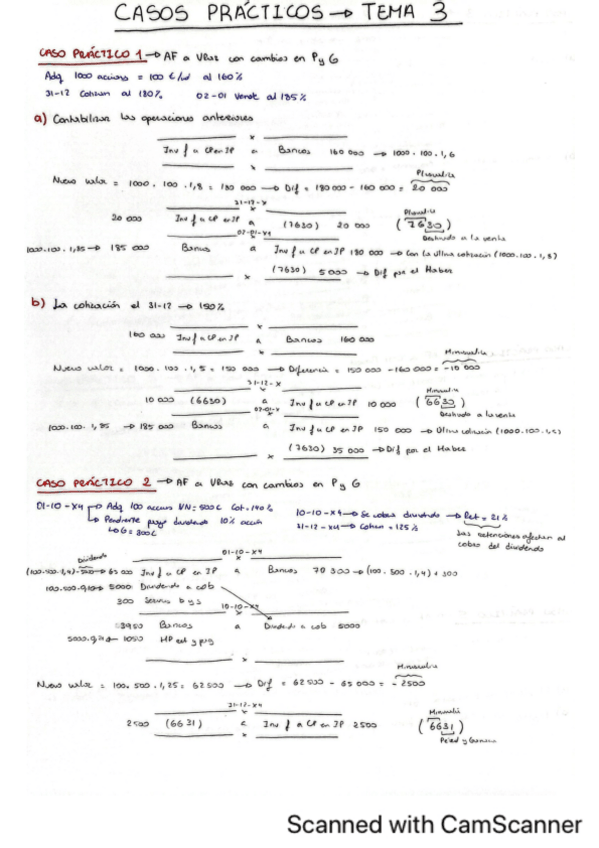 CASOS PRÁCTICOS → TEMA 3
CASO PRÁCTICO 1 → AF a VRaz con cambios en P y G
Adq 1000 acciones = 100 €/ud al 160%
31-12 Cotizan al 180% 02-01 Vende al 185%
a) Contabilizar las operaciones anteriores
x
Inv f a CP en IP a Bancos 160 000 → 1000 . 100 . 1,6
x
Plusvalía
Nuevo valor = 1000 . 100 . 1,8 = 180 000 → Dif = 180 000 - 160 000 = 20 000
31-12-X
Plusvalía
20 000 Inv f a CP en IP a (7630) 20 000 (7630)
02-01-X1 Destinado a la venta
1000.100.1,85 → 185 000 Bancos a Inv f a CP en IP 180 000 → Con la última cotización (1000.100.1,8)
x (7630) 5 000 → Dif por el Haber
b) La cotización el 31-12 → 150%
x
160 000 Inv f a CP en IP a Bancos 160 000
x
Minusvalía
Nuevo valor = 1000 . 100 . 1,5 = 150 000 → Diferencia = 150 000 - 160 000 = -10 000
31-12-X
Minusvalía
10 000 (6630) a Inv f a CP en IP 10 000 (6630)
02-01-X Destinado a la venta
1000.100.1,85 → 185 000 Bancos a Inv f a CP en IP 150 000 → Última cotización (1000.100.1,5)
x (7630) 35 000 → Dif por el Haber
CASO PRÁCTICO 2 → AF a VRaz con cambios en P y G
01-10-X4 → Adq 100 acciones VN = 500€ Cot = 140% 10-10-X4 → Se cobra dividendo → Ret = 21%
→ Pendiente pago dividendo 10% acción 31-12-X4 → Cotizan = 125%
→ G = 300€ Las retenciones afectan al
cobro del dividendo
Dividendo 01-10-X4
(100.500.1,4)-5000 → 65 000 Inv f a CP en IP a Bancos 70 300 → (100.500.1,4) + 300
100.500.0,10 → 5000 Dividendo a cob
300 Servicios b y s
10-10-X4
3950 Bancos a Dividendo a cob 5000
5000.0,21 → 1050 HP ret y pag
x
Minusvalía
Nuevo valor = 100 . 500 . 1,25 = 62 500 → Dif = 62 500 - 65 000 = -2500
31-12-X4
Minusvalía
2500 (6631) a Inv f a CP en IP 2500 (6631)
x
Scanned with CamScanner